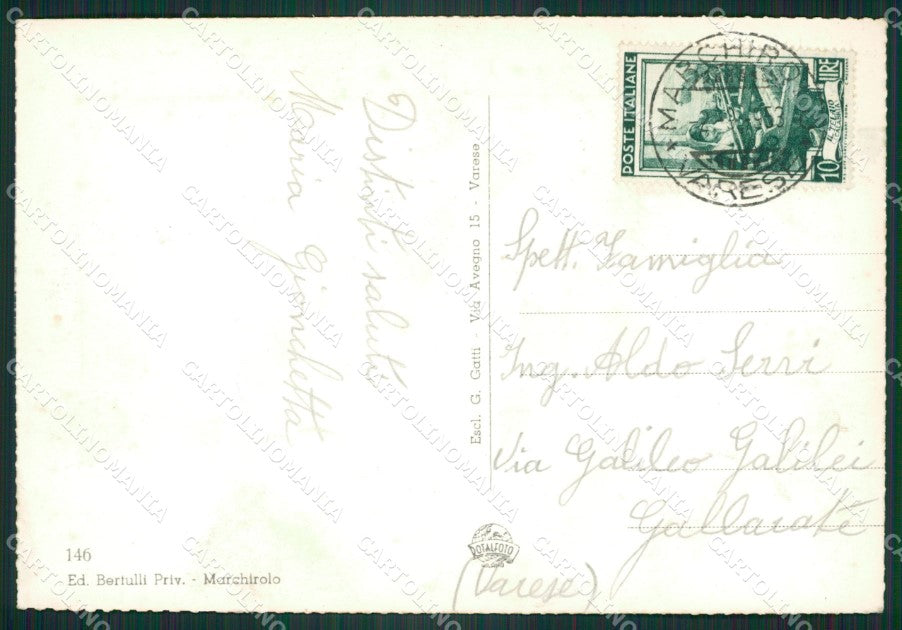 Distinti saluti
Maria Gionchetta
Escl. G. Gatti - Via Avegno 15 - Varese
POSTE ITALIANE
LIRE
10
MARCHIROLO
VARESE
Spett. Famiglia
Ing. Aldo Serri
Via Galileo Galilei
Gallarate
(Varese)
DOTALFOTO
146
Ed. Bertulli Priv. - Marchirolo
CARTOLINOMANIA